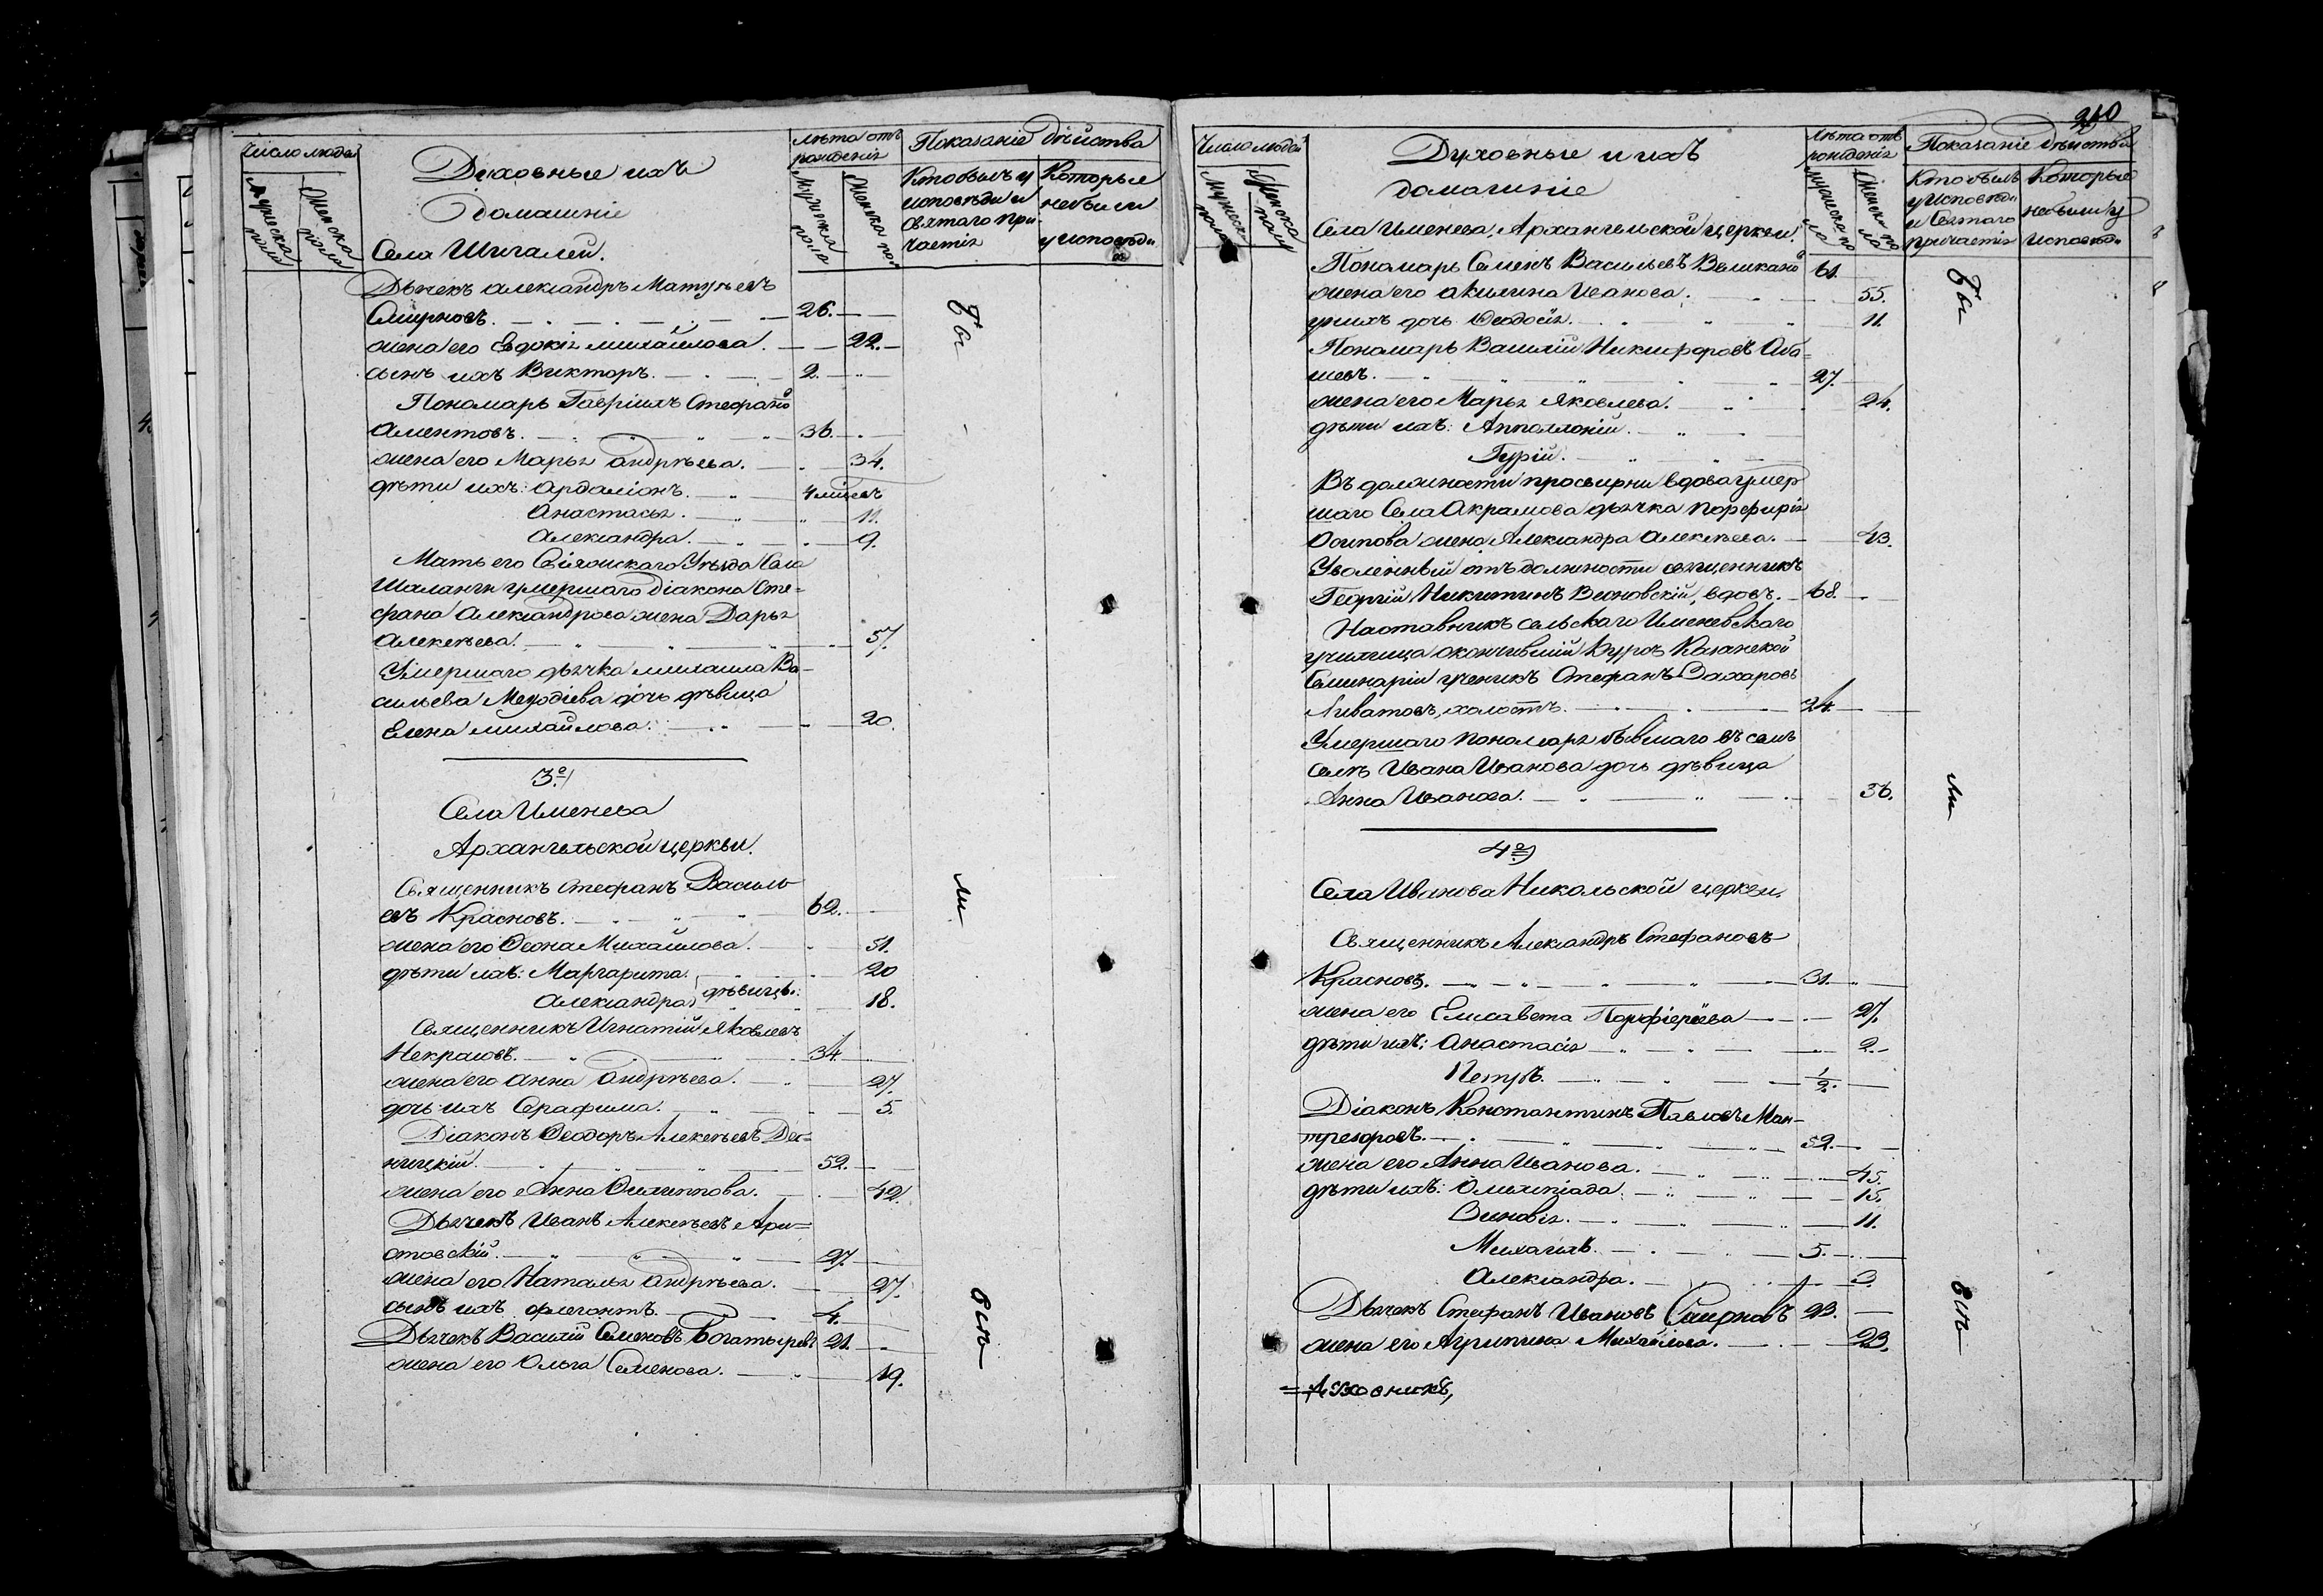 Число людей
Мужеска пола
Женска пола
Духовные ихъ
домашніе
Села Шигалей.
лѣта отъ рожденія
Мужеска пола
Женска пол
Показаніе дѣйства
Кто былъ у исповѣди и святаго причастія
Которые не были у исповѣди
Дьячекъ Александръ Матѵѣевъ
Смирновъ. 26.
жена его Евдокія Михайлова. 22.
сынъ ихъ Викторъ. 2.
Пономарь Гавріилъ Стефано
Аментовъ. 36.
жена его Марья Андрѣева. 34.
дѣти ихъ: Ардаліонъ. 4 мѣсяцъ
Анастасья. 11.
Александра. 9.
Мать его Свіяжскаго Уѣзда Села
Шаланги умершаго діакона Сте=
фана Александрова жена Дарья
Алексѣева. 57.
Умершаго дьячка Михаила Ва-
сильева Меѳодіева дочь дѣвица
Елена Михайлова. 20.
3е)
Села Именева
Архангельской церкви.
Священникъ Стефанъ Василь
евъ Красновъ. 62.
жена его Ѳеона Михайлова. 51.
дѣти ихъ: Маргарита 20
Александра дѣвицы: 18.
Священникъ Игнатій Яковлевъ
Некрасовъ. 34
жена его Анна Андрѣева. 27.
дочь ихъ Серафима. 5.
Діаконъ Ѳеодоръ Алексѣевъ Дес=
ницкій. 52.
жена его Анна Филиппова. 42.
Дьячекъ Иванъ Алексѣевъ Ари=
стовскій. 27.
жена его Наталья Андрѣева. 27.
сынъ ихъ Флегонтъ. 4.
Дьячекъ Василій Семеновъ Богатыревъ 21.
жена его Ольга Семенова. 19.
бы
ли
всѣ
210
Число людей
Мужеска пола
Женска пола
Духовные и ихъ
домашніе
Села Именева, Архангельской церкви.
лѣта отъ рожденія
мужеска пола
Женска пола
Показаніе дѣйства
Кто былъ у исповѣди и святаго причастія
Которые не были у исповѣди
Пономарь Семенъ Васильевъ Великано 61.
жена его Акилина Иванова. 55.
у нихъ дочь Ѳеодосія. 11.
Пономарь Василій Никифоровъ Аба=
шевъ. 27.
жена его Марья Яковлева. 24.
дѣти ихъ: Апполлоній.
Гурій.
Въ должности просвирни вдова умер
шаго Села Акрамова дьячка Порфирія
Осипова жена Александра Алексѣева. 43.
Уволенный отъ должности священникъ
Георгій Никитинъ Весновскій, вдовъ. 68.
Наставникъ сельскаго Именевскаго
училища окончившій курсъ Казанской
Семинаріи ученикъ Стефанъ Захаровъ
Ливатовъ, холостъ. 24.
Умершаго пономаря бывшаго въ семъ
селѣ Ивана Иванова дочь дѣвица
Анна Иванова. 36.
4е)
Села Иванова Никольской церкви.
Священникъ Александръ Стефановъ
Красновъ. 31.
жена его Елисавета Порфирьева 27.
дѣти ихъ: Анастасія 2.
Петръ. 1/2.
Діаконъ Константинъ Павловъ Ман-
трезоровъ. 52.
жена его Анна Иванова. 45.
дѣти ихъ: Олимпіада. 15.
Зиновія. 11.
Михаилъ. 5.
Александра.
Дьячекъ Стефанъ Ивановъ Смирновъ 23.
жена его Агрипина Михайлова. 23.
бы
ли
всѣ